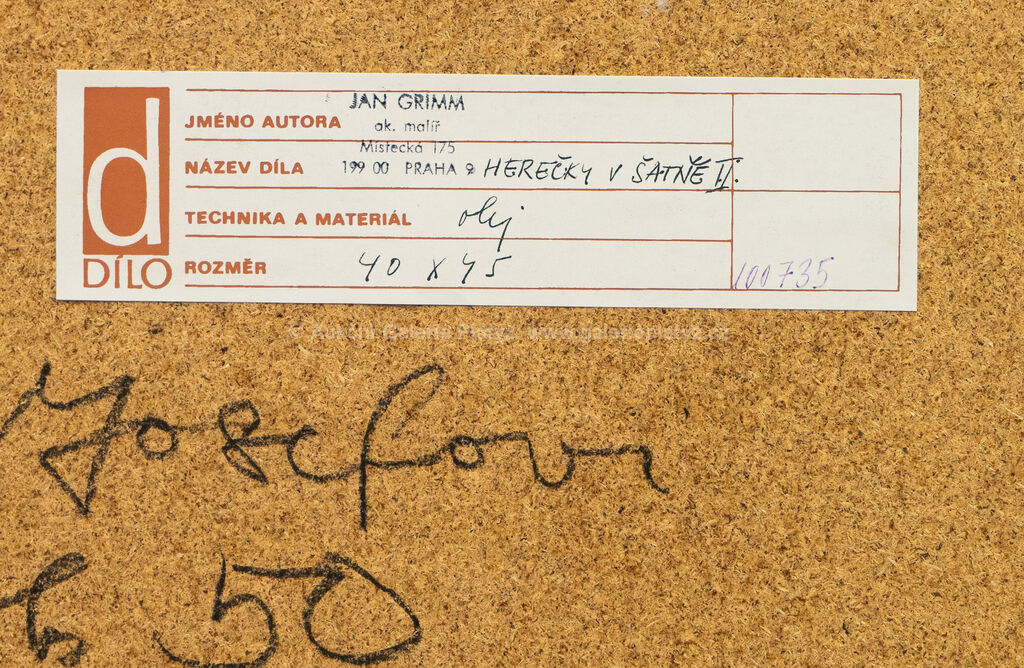 JAN GRIMM
JMÉNO AUTORA
ak. malíř
Místecká 175
199 00 PRAHA 9
NÁZEV DÍLA HEREČKY V ŠATNĚ II.
TECHNIKA A MATERIÁL olej
d
DÍLO
ROZMĚR 40 x 45
100735
© Aukční Galerie Platýz, www.galerieplatyz.cz
Josefovi
50